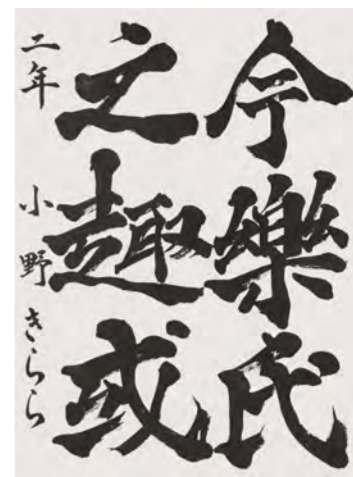 今樂氏
之趣或
二年 小野きらら